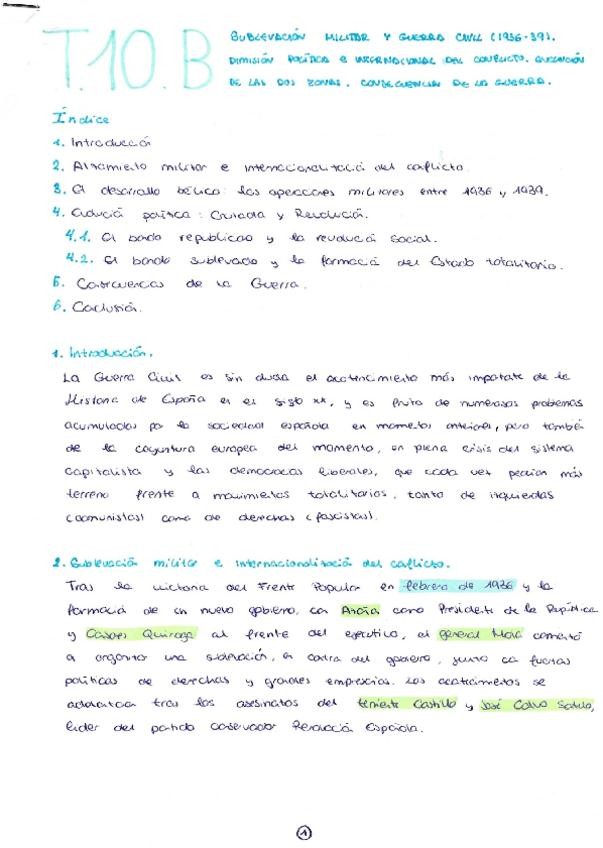 T.10.B
SUBLEVACIÓN MILITAR Y GUERRA CIVIL (1936-39).
DIMISIÓN POLÍTICA E INTERNACIONAL DEL CONFLICTO. EVOLUCIÓN
DE LAS DOS ZONAS. CONSECUENCIA DE LA GUERRA.
Índice
1. Introducción
2. Alzamiento militar e internacionalización del conflicto.
3. El desarrollo bélico: las operaciones militares entre 1936 y 1939.
4. Evolución política: Cruzada y Revolución.
4.1. El bando republicano y la revolución social.
4.2. El bando sublevado y la formación del Estado totalitario.
5. Consecuencias de la Guerra.
6. Conclusión.
1. Introducción.
La Guerra Civil es sin duda el acontecimiento más importante de la
Historia de España en el siglo XX, y es fruto de numerosos problemas
acumulados por la sociedad española en momentos anteriores, pero también
de la coyuntura europea del momento, en plena crisis del sistema
capitalista y las democracias liberales, que cada vez perdían más
terreno frente a movimientos totalitarios, tanto de izquierdas
(comunistas) como de derechas (fascistas).
2. Sublevación militar e internacionalización del conflicto.
Tras la victoria del Frente Popular en febrero de 1936 y la
formación de un nuevo gobierno, con Azaña como Presidente de la República
y Casares Quiroga al frente del ejecutivo, el general Mola comenzó
a organizar una sublevación, en contra del gobierno, junto con fuerzas
políticas de derechas y grandes empresarios. Los acontecimientos se
adelantaron tras los asesinatos del teniente Castillo y José Calvo Sotelo,
líder del partido conservador Renovación Española.
1